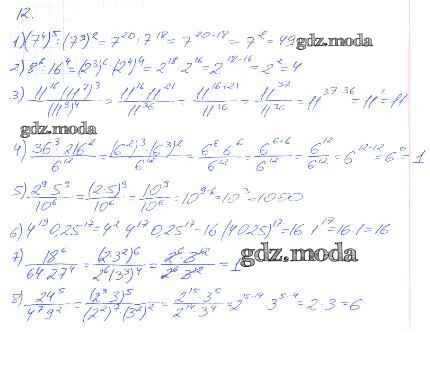 12.
1) (7⁴)⁵ : (7⁹)² = 7²⁰ : 7¹⁸ = 7²⁰⁻¹⁸ = 7² = 49
gdz.moda
2) 8⁶ : 16⁴ = (2³)⁶ : (2⁴)⁴ = 2¹⁸ : 2¹⁶ = 2¹⁸⁻¹⁶ = 2² = 4
3) 11¹⁶ (11⁷)³ / (11⁹)⁴ = 11¹⁶ 11²¹ / 11³⁶ = 11¹⁶⁺²¹ / 11³⁶ = 11³⁷ / 11³⁶ = 11³⁷⁻³⁶ = 11¹ = 11
gdz.moda
4) 36³ · 216² / 6¹² = (6²)³ (6³)² / 6¹² = 6⁶ 6⁶ / 6¹² = 6⁶⁺⁶ / 6¹² = 6¹² / 6¹² = 6¹²⁻¹² = 6⁰ = 1
5) 2⁹ 5⁹ / 10⁶ = (2·5)⁹ / 10⁶ = 10⁹ / 10⁶ = 10⁹⁻⁶ = 10³ = 1000
6) 4¹⁹ 0,25¹⁷ = 4² 4¹⁷ 0,25¹⁷ = 16 (4 0,25)¹⁷ = 16 1¹⁷ = 16 1 = 16
gdz.moda
7) 18⁶ / 64 27⁴ = (2 3²)⁶ / 2⁶ (3³)⁴ = 2⁶ 3¹² / 2⁶ 3¹² = 1
8) 24⁵ / 4⁷ 9² = (2³ 3)⁵ / (2²)⁷ (3²)² = 2¹⁵ 3⁵ / 2¹⁴ 3⁴ = 2¹⁵⁻¹⁴ 3⁵⁻⁴ = 2 · 3 = 6